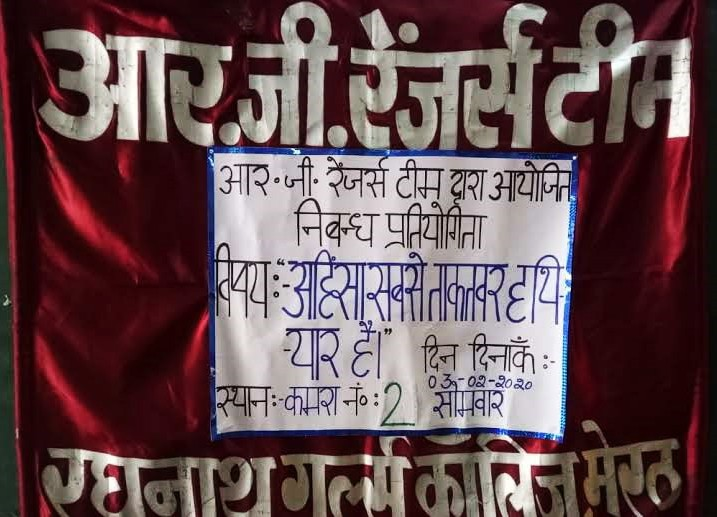 आर.जी.रेंजर्स टीम
आर॰जी॰ रेंजर्स टीम द्वारा आयोजित
निबन्ध प्रतियोगिता
विषय:-"अहिंसा सबसे ताकतवर हथि-
-यार है।"
दिन दिनाँक :-
03-02-2020
स्थान:-कमरा नं॰: 2
सोमवार
रघुनाथ गर्ल्स कॉलिज, मेरठ